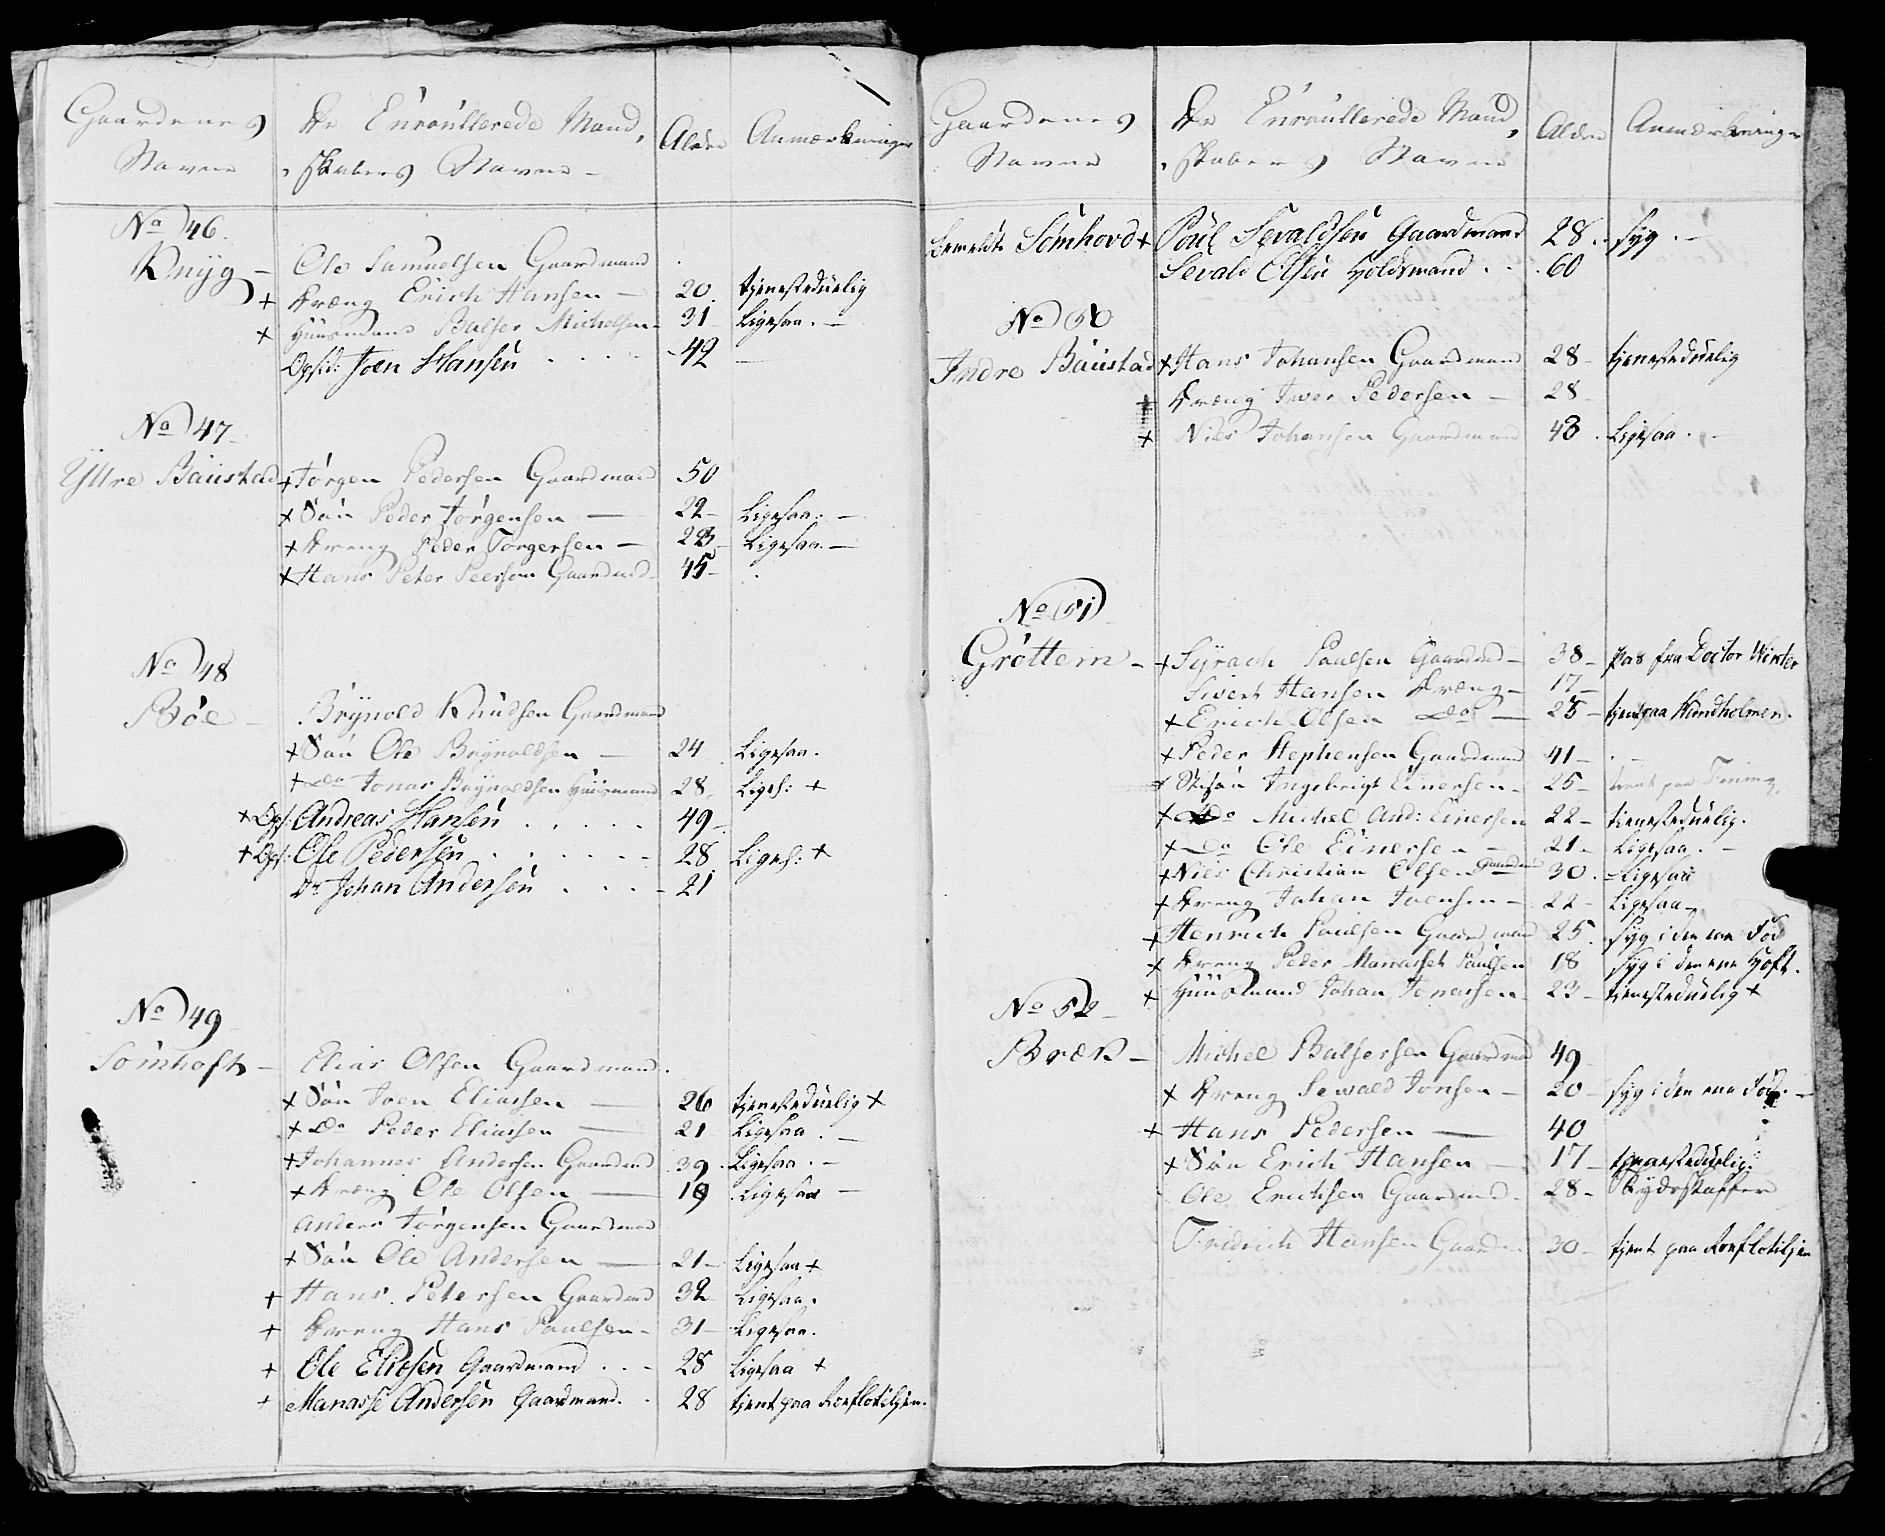 Gaardenes
Navne
De Enroullerede Mand,
skabers Navne
Alder
Anmærkninger
No 46.
Knyg - Ole Samuelsen Gaardmand
+ Dræng Erich Hansen - 20. tjenestedüelig
+ Huusmand Balser Michelsen - 31 - Ligesaa. -
Ops: Joen Hansen - 42 -
No 47
Yttre Baustad + Jørgen Pedersen Gaardmand 50
+ Søn Peder Jørgensen - 22 - Ligesaa. -
+ Dreng Peder Torgersen - 23 - Ligesaa. -
+ Hans Peter Peersen Gaardmd - 45 -
No 48
Bøe - Brynold Knudsen Gaardmand
+ Søn Ole Brynoldsen - 24 Ligesaa.
+ Do Jonas Brynoldsen Huusmand 28. Liges: +
+ Ops: Andreas Hansen . . . . . 49 -
+ Ops: Ole Pedersen . . . . . 28 Liges: +
Do Johan Andersen . . . - 21
No 49
Sømhoft - Elias Olsen Gaardmand.
+ Søn Joen Eliassen - 26 tjenestedüelig +
+ Do Peder Eliassen - 21 Ligesaa. -
+ Johannes Andersen Gaardmd 39. Ligesaa. -
+ Dræng Ole Olsen - 19 Ligesaa -
Anders Jørgensen Gaardmand
+ Søn Ole Andersen - 21 - Ligesaa +
+ Hans Petersen Gaardmd 32 - Ligesaa.
+ Dreng Hans Paulsen - 31 - Ligesaa.
+ Ole Eliesen Gaardmand . . - 28 Ligesaa +
+ Manasse Andersen Gaardmand. . 28 tjent paa Roeflotiljen.
Gaardenes
Navne
De Enroullerede Mand,
skabers Navne
Alder
Anmærkninger
bemeldte Sømhovd + Poul Sevaldsen Gaardmand 28. . syg. -
Sevald Olsen Holdsmand . . . 60
No 50
Indre Baustad + Hans Johansen Gaardmand 28 - tjenestedüelig
+ Dræng Iver Pedersen - 28 -
+ Niels Johansen Gaardmand 43. Ligesaa. -
No 51
Grøttem - + Syrach Paulsen Gaardmd - 38 - pas fra Doctor Winter
Sivert Hansen Dræng - 17 -
+ Erich Olsen Do - 25 - tjent paa Hundholmen.
+ Peder Stephensen Gaardmand 41 -
+ Stifsøn Ingebrigt Einersen - 25 -
+ Do Michel And: Einersen 22 - tjenestedüelig.
+ Do Ole Einersen - 21 - Ligesaa. -
+ Niels Christian Olsen Gaardmd 30. - Ligesaa
+ Dreng Johan Joensen - 22 - Ligesaa -
+ Henrich Paulsen Gaardmand 25. syg i den ene Fod
+ Dreng Peder Manasset Paulsen 18 syg i den ene Hoft.
+ Huusmand Johan Jonassen - 23 - tjenestedüelig +
No 52
Bræk - Michel Balsersen Gaardmd 49 -
+ Dreng Sewald Jonsen - 20 - syg i den ene Fod. -
+ Hans Pedersen - 40
+ Søn Erich Hansen - 17 - tjenestedüelig.
Ole Erichsen Gaardmd - 28 - Skydsskaffer
Fridrich Hansen Gaardm 30 - tjent paa Roeflotiljen